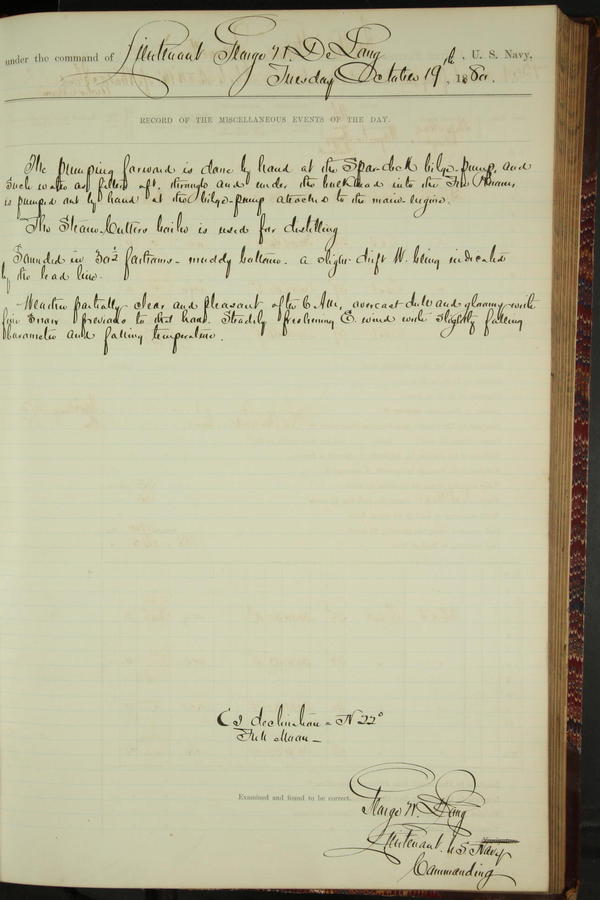 under the command of Lieutenant George W. De Long, U. S. Navy,
Tuesday October 19th, 1880.
RECORD OF THE MISCELLANEOUS EVENTS OF THE DAY.
The pumping forward is done by hand at the Spar-deck bilge-pump, and
such water as filters aft, through and under the bulkhead into the Fire Room,
is pumped out by hand at the bilge-pump attached to the main engine.
The Steam-Cutters boiler is used for distilling
Sounded in 30½ fathoms - muddy bottom. a slight drift W. being indicated
by the lead line.
Weather partially clear and pleasant after 6 A.M., overcast dull and gloomy with
fine snow previous to that hour. Steadily freshening E. wind with slightly falling
barometer and falling temperature.
declination = N 22°
Full Moon -
Examined and found to be correct.
George W. De Long
Lieutenant. U.S. Navy
Commanding